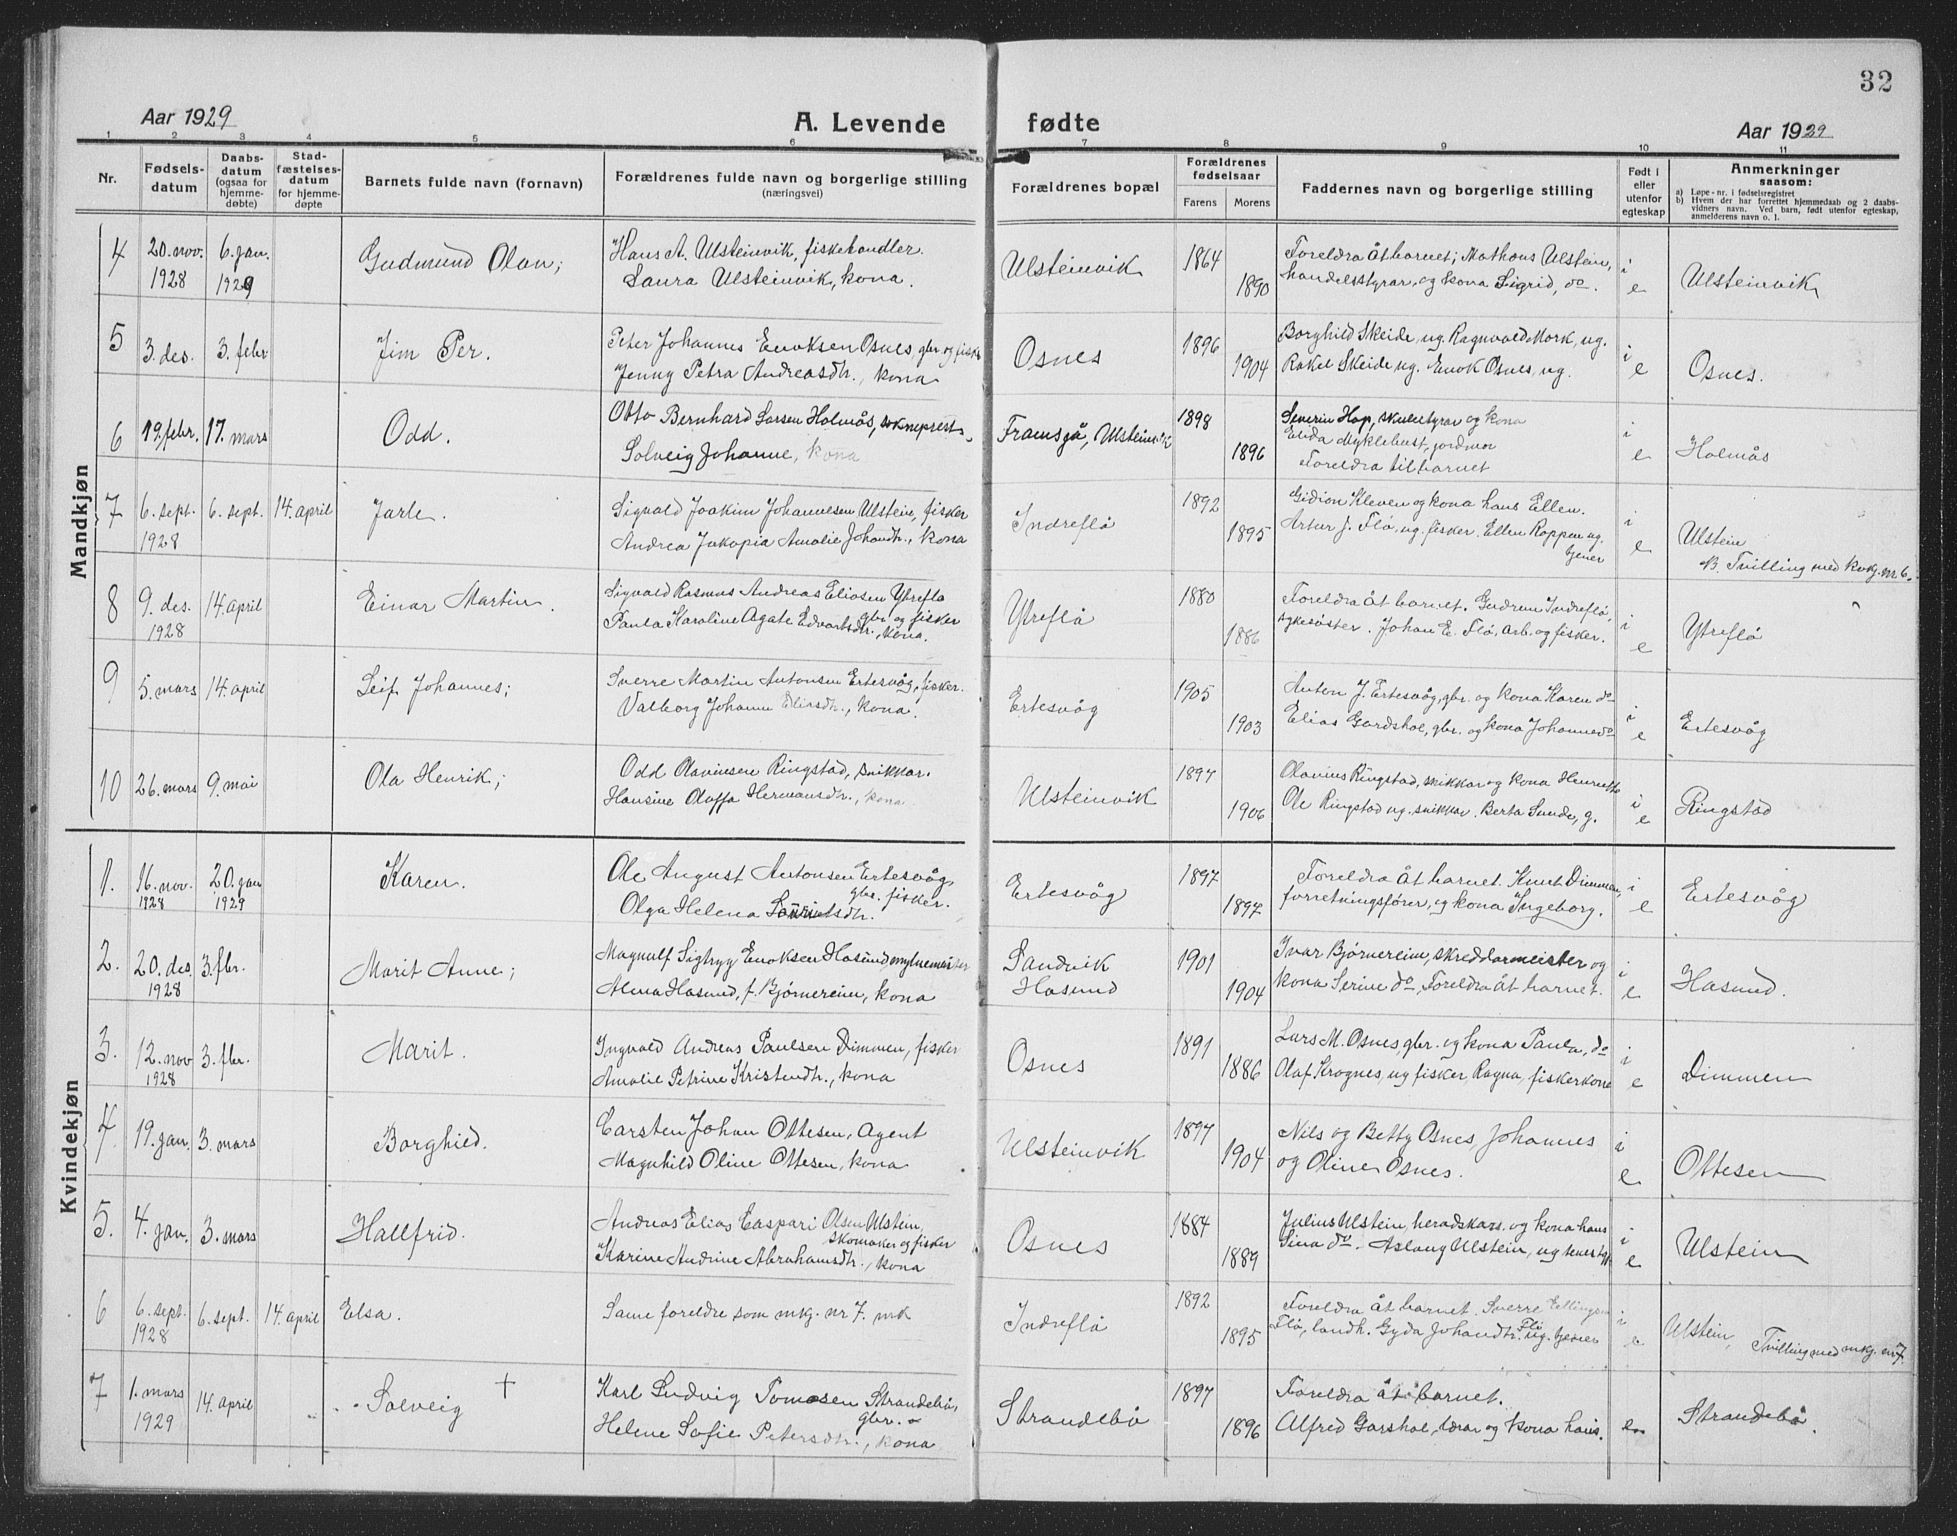 32
Aar 1929
A. Levende fødte
Aar 1929
1 2 3 4 5 6 7 8 9 10 11
Nr.
Fødsels-
datum
Daabs-
datum
(ogsaa for
hjemme-
døbte)
Stad-
fæstelses-
datum
for hjemme-
døpte
Barnets fulde navn (fornavn)
Forældrenes fulde navn og borgerlige stilling
(næringsvei)
Forældrenes bopæl
Forældrenes
fødselsaar
Farens Morens
Faddernes navn og borgerlige stilling
Født i
eller
utenfor
egteskap
Anmerkninger
saasom:
a) Løpe-nr. i fødselsregistret
b) Hvem der har forrettet hjemmedaab og 2 daabs-
vidners navn. Ved barn, født utenfor egteskap,
anmelderens navn o. l.
Mandkjøn
4 20. nov. 1928 6. jan. 1929 Gudmund Olan;
Hans A. Ulsteinvik, fiskehandler.
Laura Ulsteinvik, kona.
Ulsteinvik 1864 1890
Foreldra åt barnet; Mathous Ulstein,
handelsstyrar, og kona Sigrid, do.
i e Ulsteinvik
5 3. des. 3. febr Jim Per.
Peter Johannes Enoksen Osnes gbr og fisk
Jenny Petra Andreasdtr., kona
Osnes 1896 1904
Borghild Skeide, ug. Ragnvald Mork, ug.
Rakel Skeide ug. Enok Osnes, ug.
i e Osnes.
6 19. febr. 17. mars Odd.
Otto Bernhard Larsen Holmås, sokneprest
Solveig Johanne, kona
Framsjå, Ulsteinvik 1898 1896
Severin Hop, skulestyrar og kona
Elida Myklebust, jordmor
Foreldra til barnet
i e Holmås
7 6. sept. 1928 6. sept. 14. april Jarle.
Sigvald Joakim Johannesen Ulstein, fisker
Andrea Jakopia Amalie Johandtr., kona
Indreflø 1892 1895
Gidion Kleven og kona hans Ellen.
Artur J. Flø, ug. fisker. Ellen Roppen ug.
tjener
i e Ulstein
B. Tvilling med kvkj. nr. 6.
8 9. des. 1928 14 april Einar Martin.
Sigvald Rasmus Andreas Eliasen Ytreflø
gbr. og fisker
Paula Karoline Agate Edvartsdtr., kona.
Ytreflø 1880 1886
Foreldra åt barnet. Gudrun Indreflø,
sykesøster. Johan E. Flø, arb. og fisker.
i e Ytreflø
9 5. mars 14. april Leif Johannes;
Sverre Martin Antonsen Ertesvåg, fisker.
Valborg Johanne Eliasdtr., kona.
Ertesvåg 1905 1903
Anton J. Ertesvåg, gbr. og kona Karen do
Elias Gardshol, gbr. og kona Johanne do
i e Ertesvåg
10 26. mars 9. mai Ola Henrik;
Odd Olavinsen Ringstad, snikkar.
Hansine Oluffa Hermansdtr., kona
Ulsteinvik 1897 1906
Olavius Ringstad, snikkar og kona Henriette
Ole Ringstad ug. snikkar. Berta Sunde, g.
i e Ringstad
Kvindekjøn
1. 16. nov. 1928 20. jan 1929 Karen.
Ole August Antonsen Ertesvåg,
gbr. fisker.
Olga Helena
Ertesvåg 1897 1897
Foreldra åt barnet. Knut Dimmen,
forretningsfører, og kona Ingeborg.
i e Ertesvåg
2. 20. des. 1928 3. fbr. Marit Anne;
Magnulf Sigtryg Enoksen Hasund mylnemeister
Alma Hasund, f. Bjørnereim, kona
Sandvik
Hasund 1901 1904
Ivar Bjørnereim, skreddarmeister og
kona Serine do, Foreldra åt barnet.
i e Hasund.
3. 12. nov 1928 3. fbr. Marit.
Ingvald Andreas Paulsen Dimmen, fisker
Amalie Petrine Kristendtr., kona
Osnes 1891 1886
Lars M. Osnes, gbr. og kona Paula, do
Olaf Krognes, ug fisker Ragna, fiskerkone
i e Dimmen
4 19. jan. 3. mars Borghild.
Carsten Johan Ottesen, Agent
Magnhild Oline Ottesen, kona
Ulsteinvik 1897 1904
Nils og Betty Osnes, Johannes
og Oline Osnes.
i e Ottesen
5. 4. jan. 3. mars Hallfrid.
Andreas Elias Caspari Olsen Ulstein,
skomaker og fisker
Karine Andrine Abrahamsdtr., kona
Osnes 1884 1889
Julius Ulstein, heradskass. og kona hans
Sina do. Aslaug Ulstein, ug
i e Ulstein
6 6. sept. 1928 6. sept. 14. april Elsa.
Same foreldre som mkj. nr 7.
Indreflø 1892 1895
Foreldra åt barnet. Sverre Ellingsen
Flø, landh. Gyda Johandtr. Flø ug. tjener
i e Ulstein, Tvilling med mkj. nr 7.
7 1. mars 1929 14. april Solveig †
Karl Ludvig Tomasen Strandebø,
gbr.
Helene Sofie Petersdtr., kona
Strandebø 1897 1896
Foreldra åt barnet.
Alfred Garshol, lærar og kona hans.
e Strandebø.